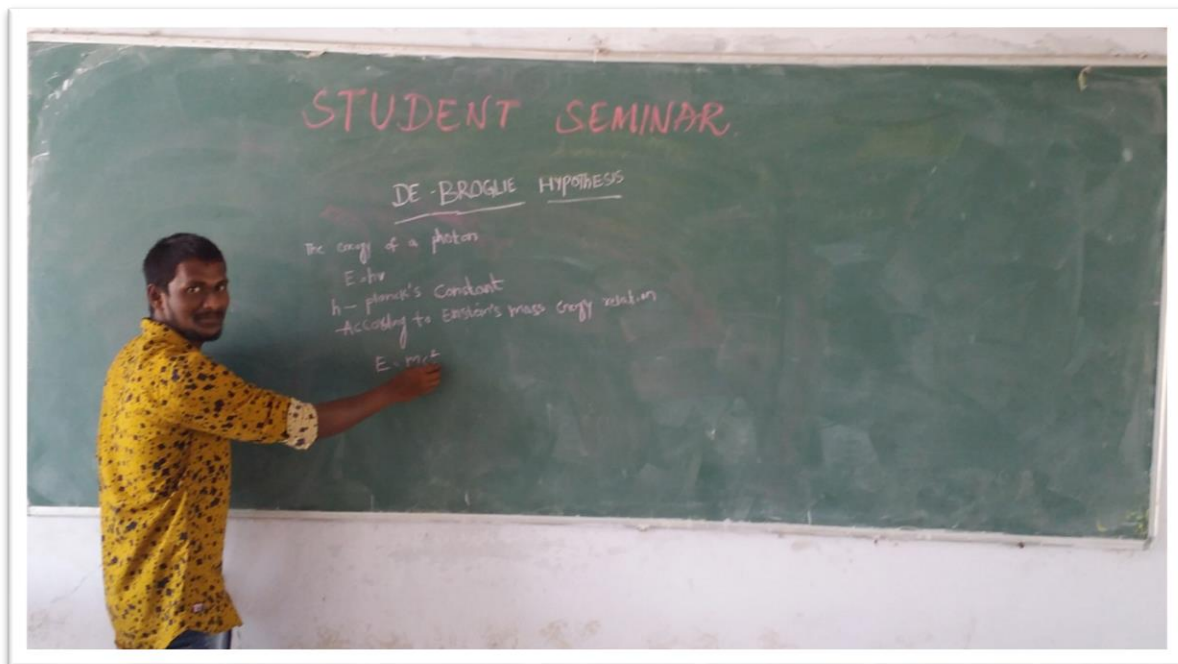 STUDENT SEMINAR.
DE-BROGLIE HYPOTHESIS
The energy of a photon
E=hν
h- planck's Constant
According to Einstein's mass energy relation
E=mc²